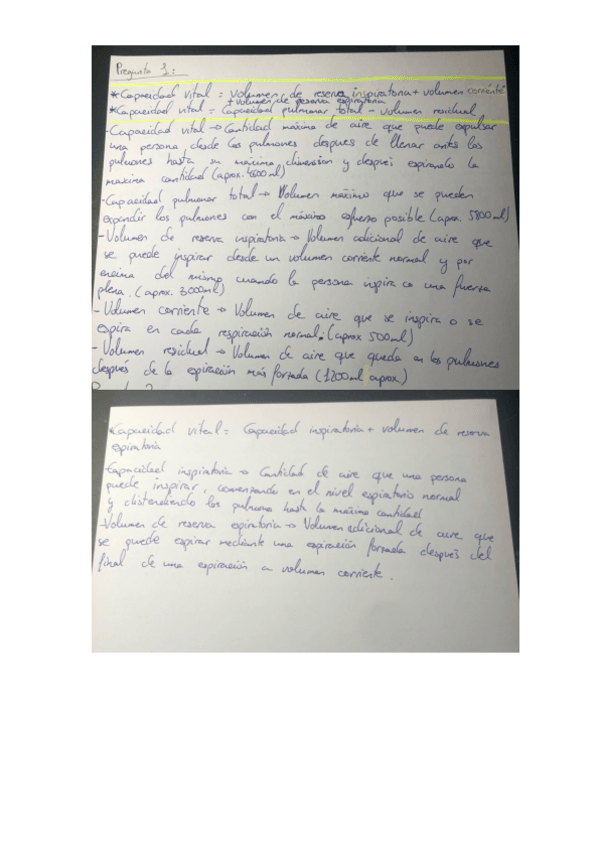 Pregunta 1:
*Capacidad vital = Volumen de reserva inspiratoria + volumen corriente
+ volumen de reserva espiratoria
*Capacidad vital = Capacidad pulmonar total - volumen residual
-Capacidad vital → Cantidad máxima de aire que puede expulsar
una persona desde los pulmones despues de llenar antes los
pulmones hasta su máxima dimension y después espirando la
maxima cantidad (aprox. 4600 ml)
-Capacidad pulmonar total → Volumen máximo que se pueden
expandir los pulmones con el máximo esfuerzo posible (aprox. 5800 ml)
-Volumen de reserva inspiratoria → Volumen adicional de aire que
se puede inspirar desde un volumen corriente normal y por
encima del mismo cuando la persona inspira con una fuerza
plena. (aprox. 3000ml)
-Volumen corriente → Volumen de aire que se inspira o se
espira en cada respiración normal. (aprox 500ml)
-Volumen residual → Volumen de aire que queda en los pulmones
después de la espiración más forzada (1200ml aprox.)
Capacidad vital = Capacidad inspiratoria + volumen de reserva
espiratoria
Capacidad inspiratoria → Cantidad de aire que una persona
puede inspirar, comenzando en el nivel espiratorio normal
y distendiendo los pulmones hasta la máxima cantidad
-Volumen de reserva espiratoria → Volumen adicional de aire que
se puede espirar mediante una espiración forzada después del
final de una espiración a volumen corriente.